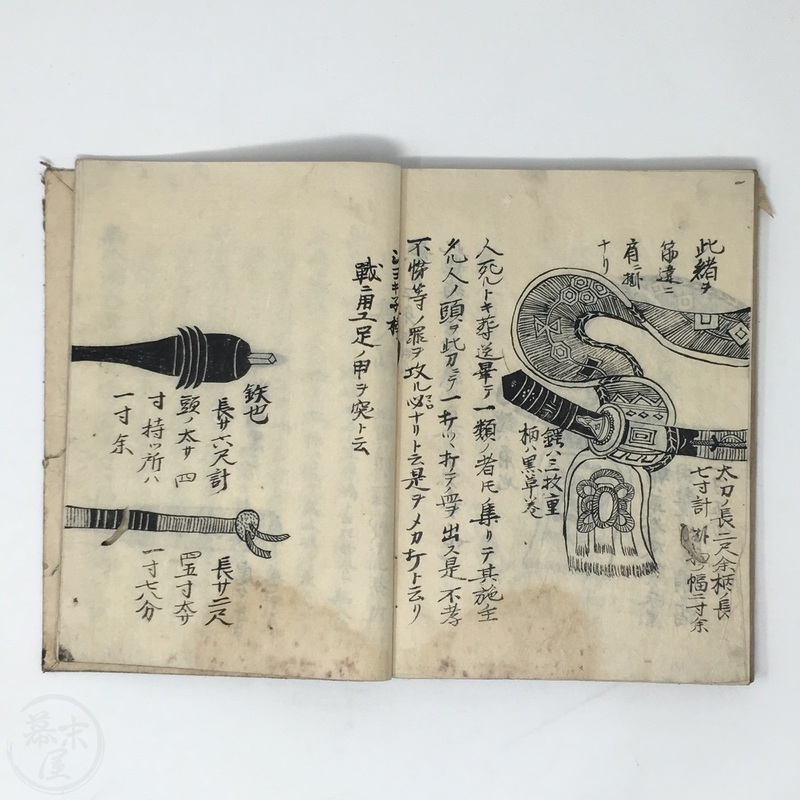 此緒ヲ
筋違ニ
肩ニ掛
ナリ
太刀ノ長二尺余柄ノ長
七寸計 幅二寸余
鍔ハ三枚重
柄ハ黒草巻
人死ルトキ葬送畢テ一類ノ者共集リテ其施主
タル人ノ頭ヲ此刀ニテ一打ツヽ打テ血ヲ出ス是不孝
不悌等ノ罪ヲ攻ル ナリト云是ヲメカ打ト云リ
戰ニ用エ足ノ甲ヲ突ト云
鉄也
長サ六尺計
頭ノ太サ四
寸持ツ所ハ
一寸余
長サ二尺
四五寸太サ
一寸七八分
幕末屋